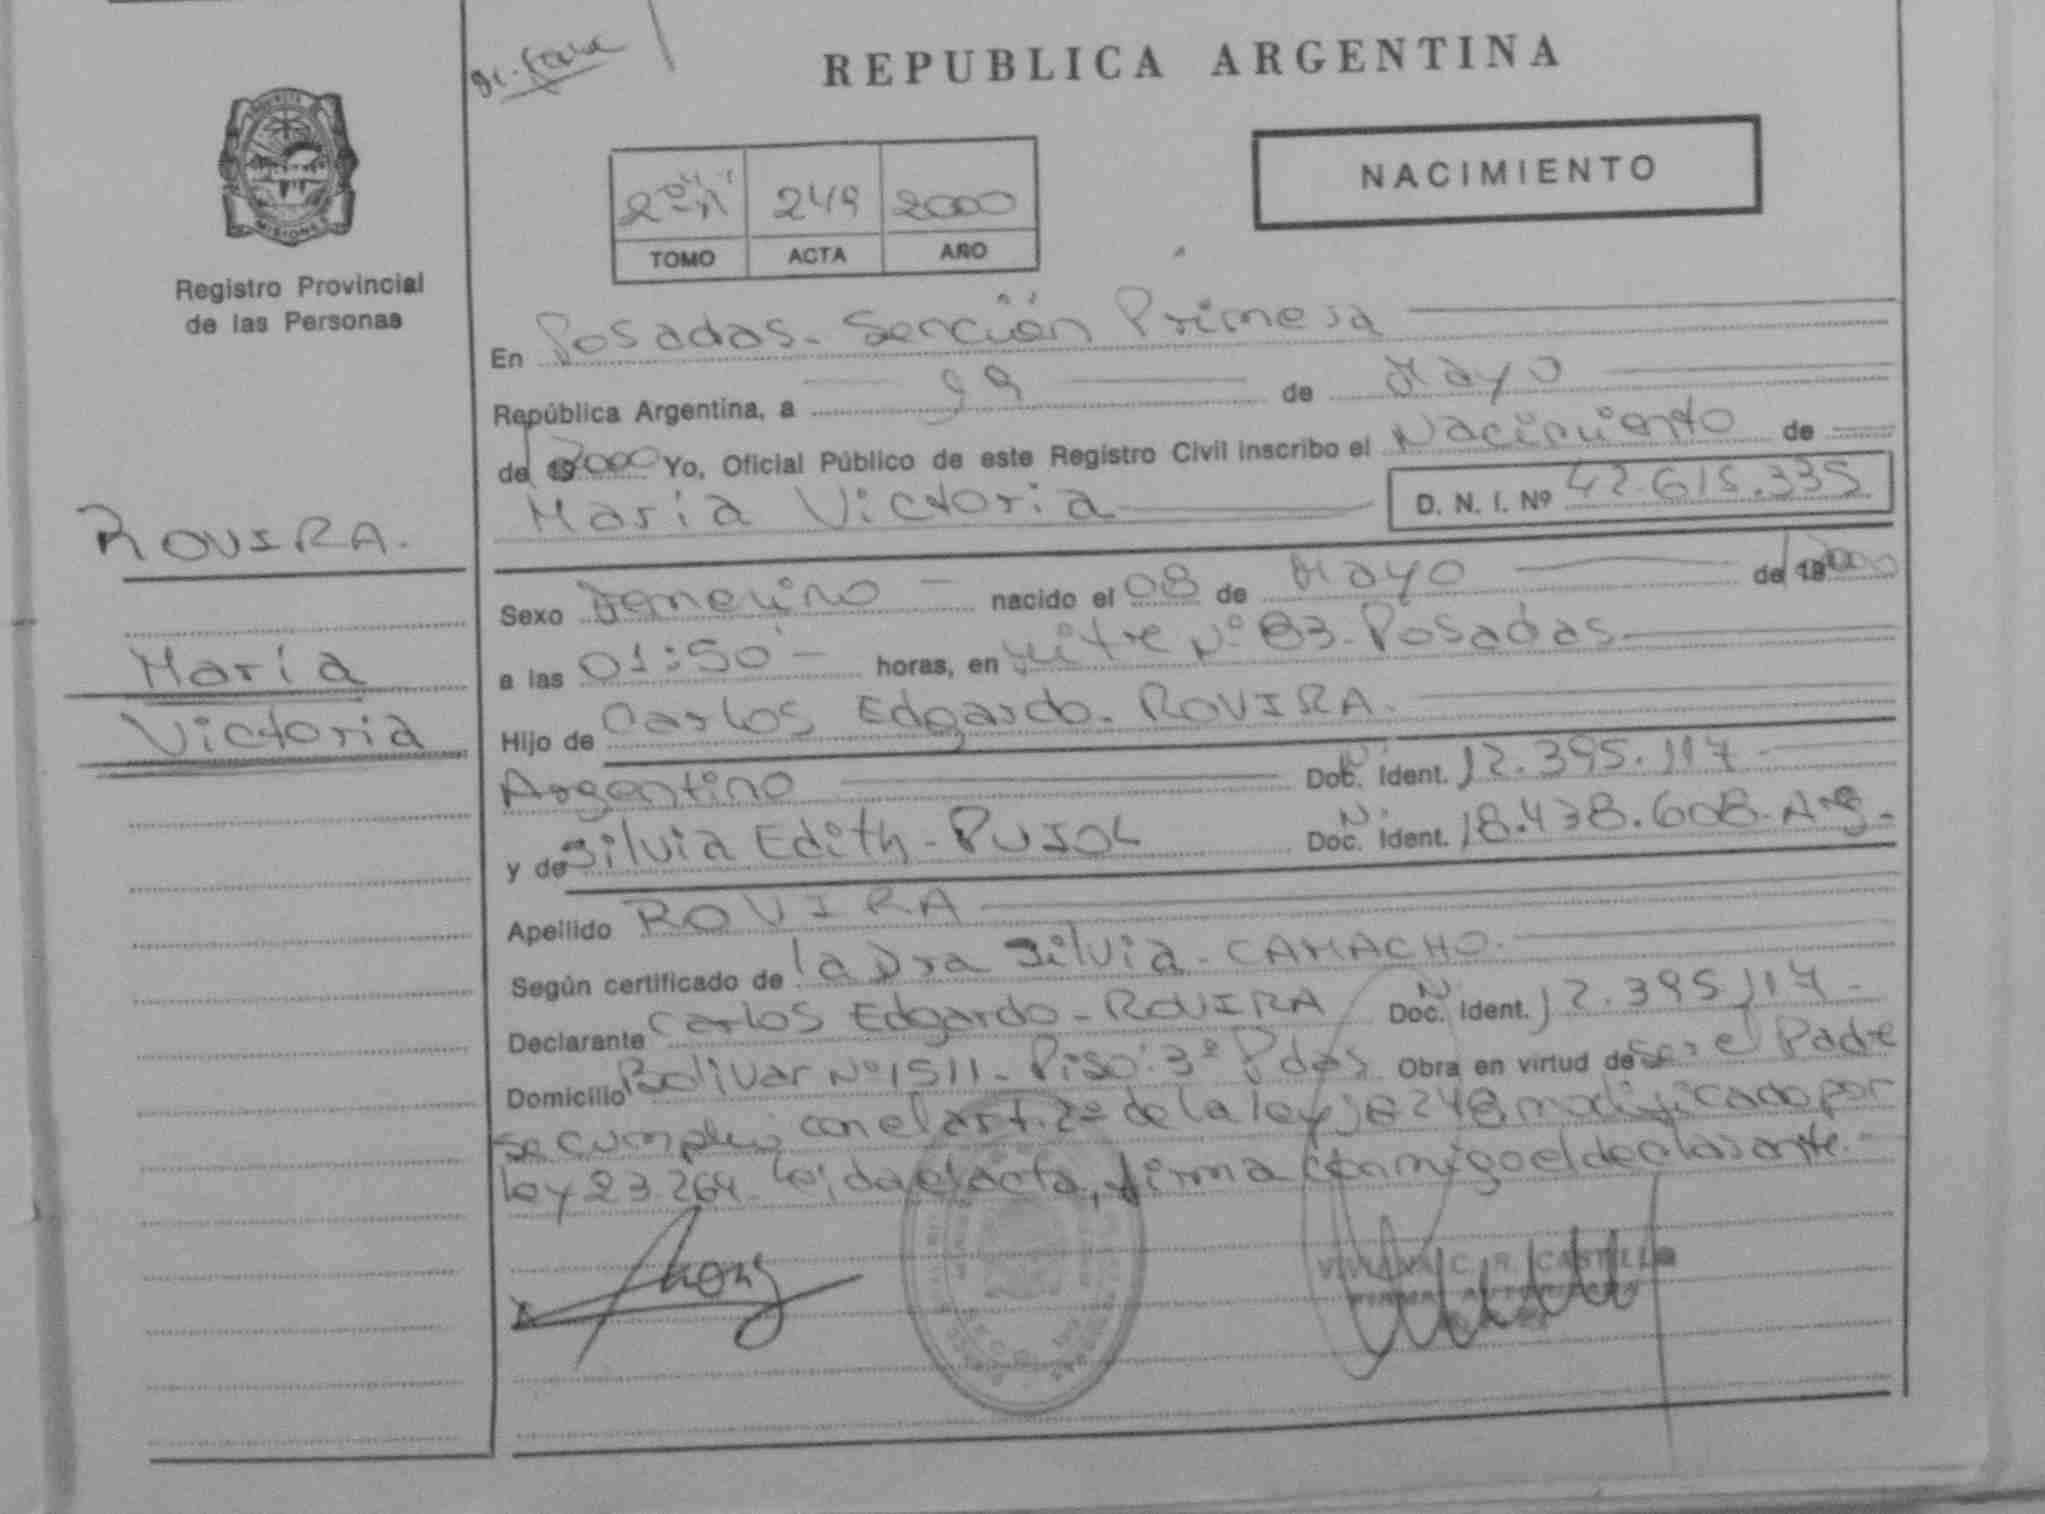 REPUBLICA ARGENTINA
NACIMIENTO
249 2000
TOMO ACTA AÑO
MISIONES
Registro Provincial
de las Personas
ROVIRA.
María
Victoria
En Posadas. Sección Primera
República Argentina, a de Mayo
de 19 2000 Yo, Oficial Público de este Registro Civil inscribo el Nacimiento de
María Victoria D. N. I. Nº 42.615.335
Sexo Femenino nacido el 08 de Mayo de 19 2000
a las 01:50 horas, en Mitre Nº 83. Posadas
Hijo de Carlos Edgardo. ROVIRA.
Argentino Doc. Ident. 12.395.117
y de Silvia Edith. PUJOL Doc. Ident. 18.438.608. Arg.
Apellido ROVIRA
Según certificado de la Dra Silvia. CAMACHO.
Declarante Carlos Edgardo. ROVIRA Doc. Ident. 12.395.117
Domicilio Bolivar Nº 1511. Piso: 3º Pdas Obra en virtud de ser el Padre
se cumplió con el art. 2º de la ley 18248 modificado por
ley 23.264. Leída el acta, firma conmigo el declarante.
VIVIANA C. R. CASTILLO
FIRMA AUTORIZADA